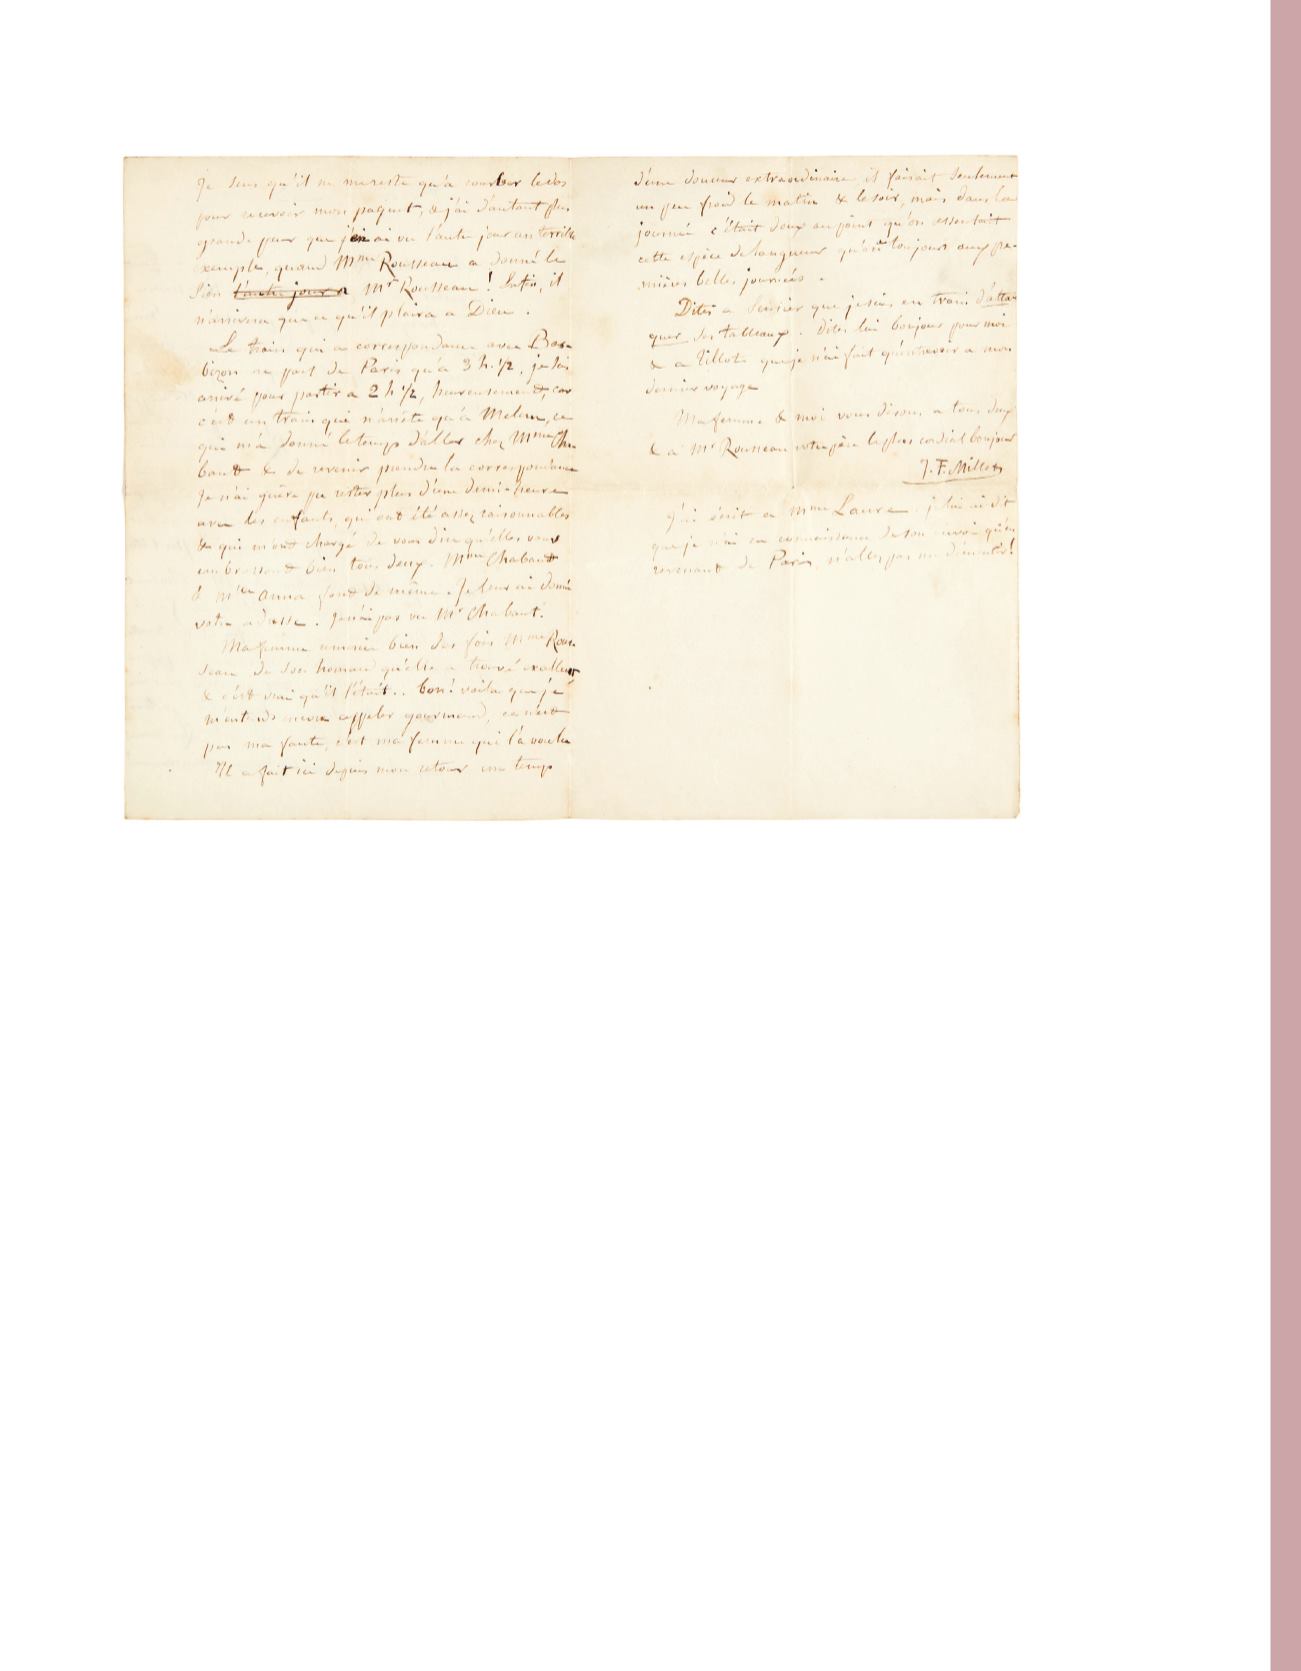 Je sens qu'il ne me reste qu'à courber le dos
pour recevoir mon paquet, & j'ai d'autant plus
grande peur que j'en ai vu l'autre jour un terrible
exemple, quand Mme Rousseau a donné le
sien l'autre jour a Mr Rousseau! Enfin, il
n'arrivera que ce qu'il plaira a Dieu.
Le train qui a correspondance avec Bar-
bizon ne part de Paris qu'à 3 h. 1/2, je suis
arrivé pour partir a 2 h 1/2, heureusement, car
c'est un train qui n'arrête qu'à Melun, ce
qui m'a donné le temps d'aller chez Mme Cha-
baut & de revenir prendre la correspondance
Je n'ai guère pu rester plus d'une demie heure
avec les enfants, qui ont été assez raisonnables
& qui m'ont chargé de vous dire qu'elles vous
embrassent bien tous deux. Mme Chabaut
& Mlle Anna font de même. Je leur ai donné
votre adresse. Je n'ai pas vu Mr Chabaut.
Ma femme remercie bien des fois Mme Rous-
seau de son homard qu'elle a trouvé excellent
& c'est vrai qu'il l'était.. bon! voila que je
m'entends encore appeler gourmand, ce n'est
pas ma faute, c'est ma femme qui l'a voulu
Il a fait ici depuis mon retour un temps
d'une douceur extraordinaire il faisait seulement
un peu froid le matin & le soir, mais dans la
journée c'était doux au point qu'on ressentait
cette espèce de langueur qu'on a toujours aux pre-
mières belles journées.
Dites a Sensier que je suis en train d'atta-
quer ses tableaux. Dites lui bonjour pour moi
& a Tillot que je n'ai fait qu'entrevoir a mon
dernier voyage
Ma femme & moi vous disons a tous deux
& a Mr Rousseau votre père le plus cordial bonjour
J. F. Millet
J'ai écrit a Mme Laure. je lui ai dit
que je n'ai eu connaissance de son envoi qu'en
revenant de Paris, n'allez pas me démentir!